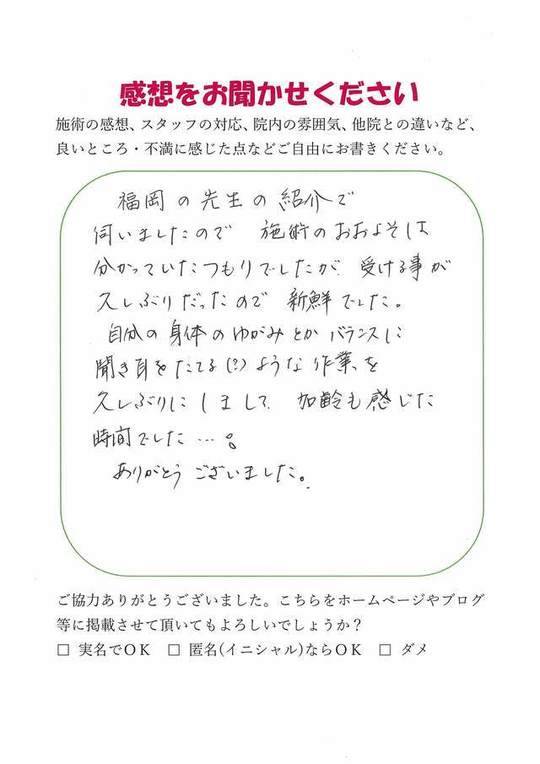 感想をお聞かせください
施術の感想、スタッフの対応、院内の雰囲気、他院との違いなど、
良いところ・不満に感じた点などご自由にお書きください。
福岡の先生の紹介で
伺いましたので 施術のおおよそは
分かっていたつもりでしたが、受ける事が
久しぶりだったので 新鮮でした。
自分の身体のゆがみとか バランスに
聞き耳をたてる(?)ような作業を
久しぶりにしまして 加齢も感じた
時間でした…。
ありがとうございました。
ご協力ありがとうございました。こちらをホームページやブログ
等に掲載させて頂いてもよろしいでしょうか？
□ 実名でOK □ 匿名(イニシャル)ならOK □ ダメ